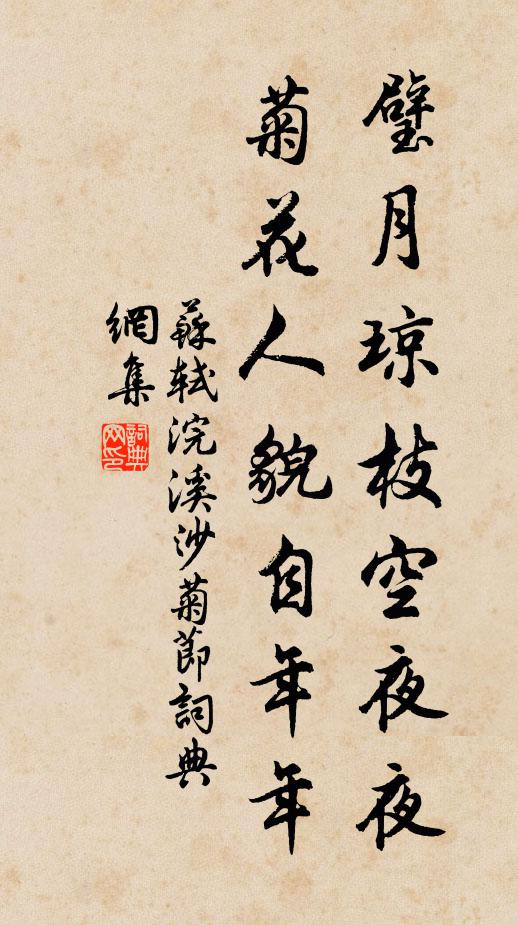 璧月琼枝空夜夜
菊花人貌自年年
蘇軾浣溪沙菊節詞典
網集
詞典
网印